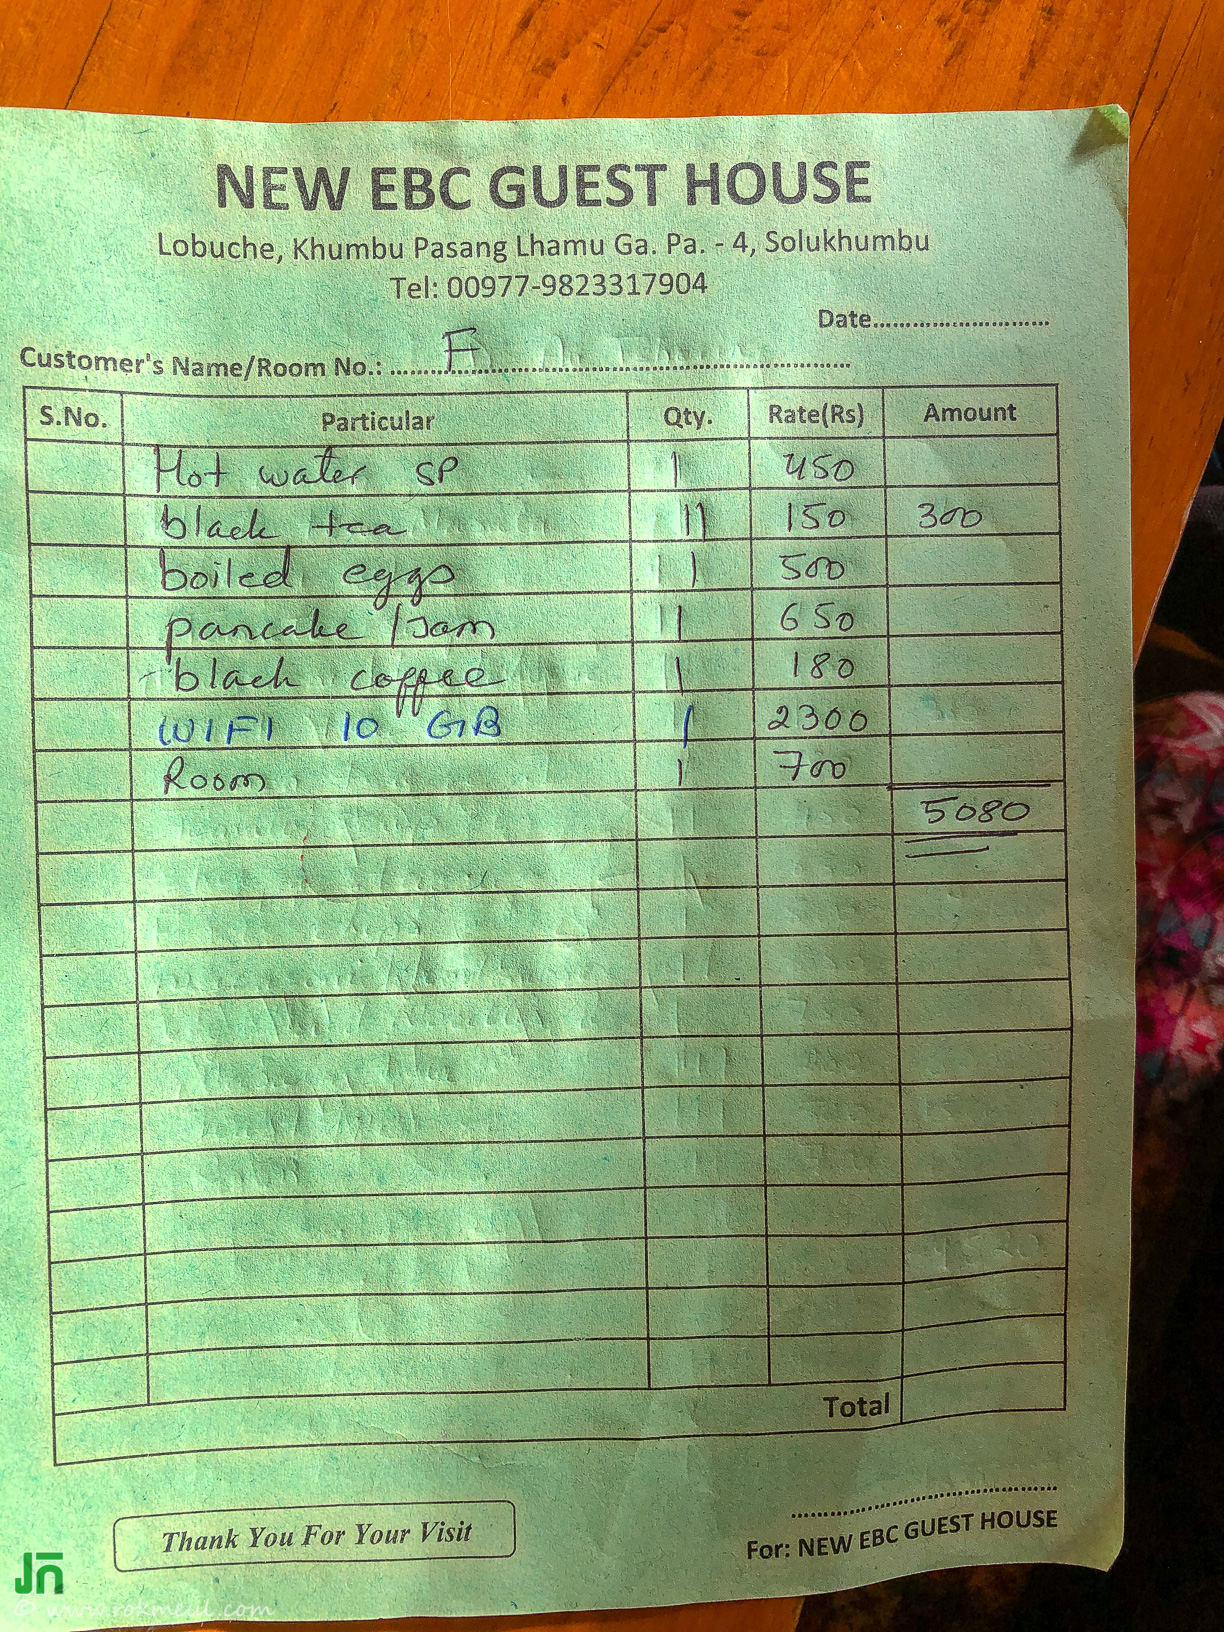 NEW EBC GUEST HOUSE
Lobuche, Khumbu Pasang Lhamu Ga. Pa. - 4, Solukhumbu
Tel: 00977-9823317904
Date............................
Customer's Name/Room No.: ........F........
S.No. Particular Qty. Rate(Rs) Amount
Hot water SP 1 450
black tea 11 150 300
boiled eggs 1 500
pancake /Jam 1 650
black coffee 1 180
WIFI 10 GB 1 2300
Room 1 700
5080
Total
Thank You For Your Visit
For: NEW EBC GUEST HOUSE
Jn